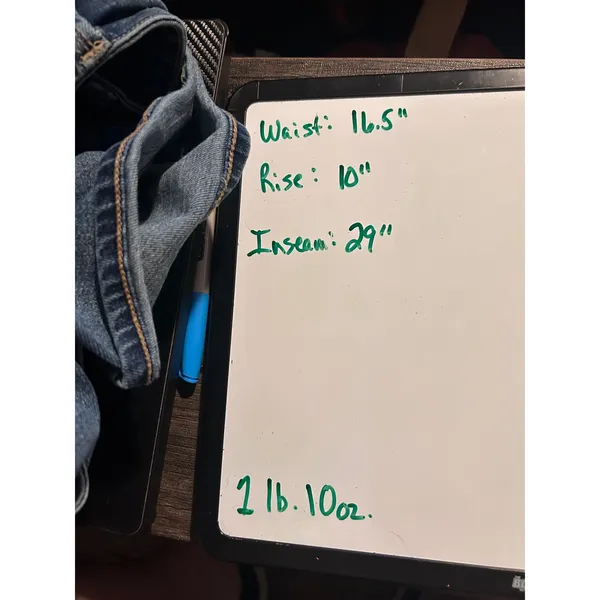 Waist: 16.5"
Rise: 10"
Inseam: 29"
1 lb. 10oz.